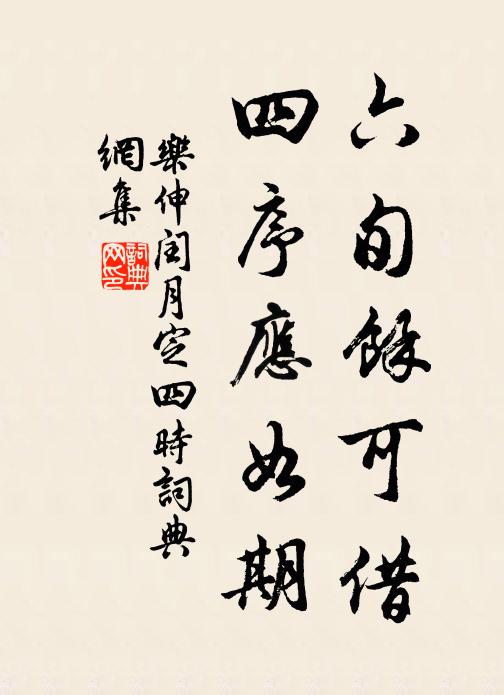 六旬餘可借
四序應如期
樂伸閏月定四時詞典
網集
詞典
网印